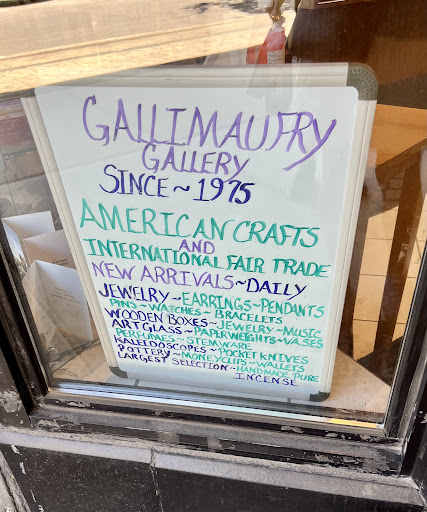 GALLIMAUFRY
GALLERY
SINCE ~ 1975
AMERICAN CRAFTS
AND
INTERNATIONAL FAIR TRADE
NEW ARRIVALS ~ DAILY
JEWELRY ~ EARRINGS ~ PENDANTS
PINS ~ WATCHES ~ BRACELETS
WOODEN BOXES ~ JEWELRY ~ MUSIC
ART GLASS ~ PAPERWEIGHTS ~ VASES
PERFUMES ~ STEMWARE
KALEIDOSCOPES ~ POCKET KNIVES
POTTERY ~ MONEYCLIPS ~ WALLETS
LARGEST SELECTION ~ HANDMADE PURE
INCENSE